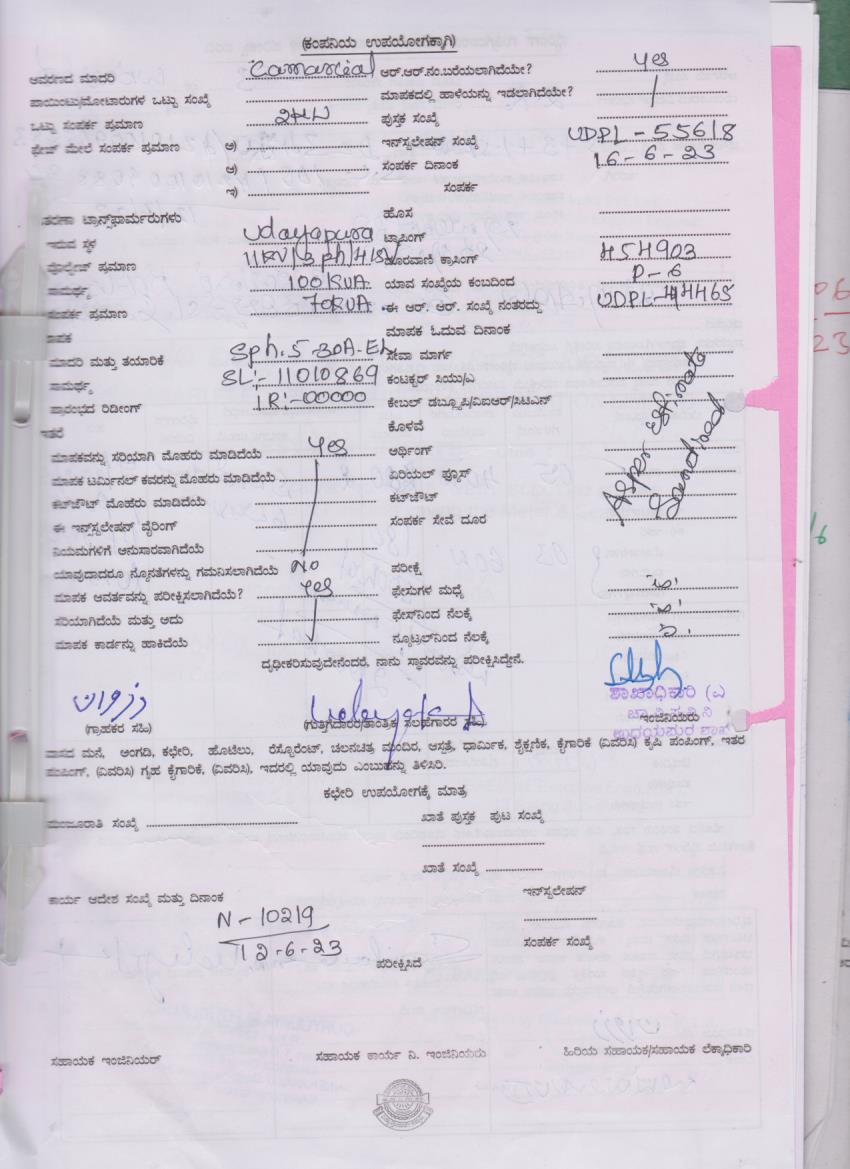 (ಕಂಪನಿಯ ಉಪಯೋಗಕ್ಕಾಗಿ)
ಆವರಣದ ಮಾದರಿ Camarcial ಆರ್.ಆರ್.ನಂ.ಬರೆಯಲಾಗಿದೆಯೇ? Yes
ಪಾಯಿಂಟು/ಮೋಟಾರುಗಳ ಒಟ್ಟು ಸಂಖ್ಯೆ ಮಾಪಕದಲ್ಲಿ ಹಾಳೆಯನ್ನು ಇಡಲಾಗಿದೆಯೇ?
ಒಟ್ಟು ಸಂಪರ್ಕ ಪ್ರಮಾಣ ಪುಸ್ತಕ ಸಂಖ್ಯೆ
ಫೇಜ್ ಮೇಲೆ ಸಂಪರ್ಕ ಪ್ರಮಾಣ ಅ) ಇನ್‌ಸ್ಟಲೇಷನ್ ಸಂಖ್ಯೆ UDPL-55618
ಆ) ಸಂಪರ್ಕ ದಿನಾಂಕ 16-6-23
ಇ) ಸಂಪರ್ಕ
ತರಣಾ ಟ್ರಾನ್ಸ್‌ಫಾರ್ಮರುಗಳು ಹೊಸ
ಇರುವ ಸ್ಥಳ Udayapura ಟ್ಯಾಪಿಂಗ್
ವೋಲ್ಟೇಜ್ ಪ್ರಮಾಣ 11KV/3ph/ ದೂರವಾಣಿ ಕ್ರಾಸಿಂಗ್ 454903
ಸಾಮರ್ಥ್ಯ 100KVA ಯಾವ ಸಂಖ್ಯೆಯ ಕಂಬದಿಂದ P-6
ಸಂಪರ್ಕ ಪ್ರಮಾಣ 70KVA ಈ ಆರ್. ಆರ್. ಸಂಖ್ಯೆ ನಂತರದ್ದು UDPL-44465
ಮಾಪಕ ಮಾಪಕ ಓದುವ ದಿನಾಂಕ
ಮಾದರಿ ಮತ್ತು ತಯಾರಿಕೆ Sph.5-30A-EL ಸೇವಾ ಮಾರ್ಗ
ಸಾಮರ್ಥ್ಯ SL:-11010869 ಕಂಟಕ್ಟರ್ ಸಿಯು/ಎ
ಪ್ರಾರಂಭದ ರಿಡೀಂಗ್ IR:-00000 ಕೇಬಲ್ ಡಬ್ಲ್ಯೂಪಿ/ವಿಐಆರ್/ಸಿಟಿಎನ್
ಇತರೆ ಕೊಳವೆ
ಮಾಪಕವನ್ನು ಸರಿಯಾಗಿ ಮೊಹರು ಮಾಡಿದೆಯೆ Yes ಅರ್ಥಿಂಗ್
ಮಾಪಕ ಟರ್ಮಿನಲ್ ಕವರನ್ನು ಮೊಹರು ಮಾಡಿದೆಯೆ ಏರಿಯಲ್ ಫ್ಯೂಸ್
ಕಟ್‌ಔಟ್ ಮೊಹರು ಮಾಡಿದೆಯೆ ಕಟ್‌ಔಟ್
ಈ ಇನ್ಸ್‌ಸ್ಟಲೇಷನ್ ವೈರಿಂಗ್ ಸಂಪರ್ಕ ಸೇವೆ ದೂರ
As per Estimate
Sanctioned
ನಿಯಮಗಳಿಗೆ ಅನುಸಾರವಾಗಿದೆಯೆ
ಯಾವುದಾದರೂ ನ್ಯೂನತೆಗಳನ್ನು ಗಮನಿಸಲಾಗಿದೆಯೆ No ಪರೀಕ್ಷೆ
ಮಾಪಕ ಆವರ್ತವನ್ನು ಪರೀಕ್ಷಿಸಲಾಗಿದೆಯೆ? Yes ಫೇಸುಗಳ ಮಧ್ಯೆ
ಸರಿಯಾಗಿದೆಯೆ ಮತ್ತು ಅದು ಫೇಸ್‌ನಿಂದ ನೆಲಕ್ಕೆ
ಮಾಪಕ ಕಾರ್ಡನ್ನು ಹಾಕಿದೆಯೆ ನ್ಯೂಟ್ರಲ್‌ನಿಂದ ನೆಲಕ್ಕೆ
ದೃಢೀಕರಿಸುವುದೇನೆಂದರೆ, ನಾನು ಸ್ಥಾವರವನ್ನು ಪರೀಕ್ಷಿಸಿದ್ದೇನೆ.
ಶಾಖಾಧಿಕಾರಿ (ವಿ
(ಗ್ರಾಹಕರ ಸಹಿ) (ಗುತ್ತಿಗೆದಾರರ/ತಾಂತ್ರಿಕ ಸಲಹೆಗಾರರ ಸಹಿ) ಇಂಜಿನಿಯರು
ಚಾ.ವಿ.ಸ.ನಿ.ನಿ
ಉದಯಪುರ ಶಾಖೆ
ವಾಸದ ಮನೆ, ಅಂಗಡಿ, ಕಛೇರಿ, ಹೊಟೆಲು, ರೆಸ್ಟೊರೆಂಟ್, ಚಲನಚಿತ್ರ ಮಂದಿರ, ಆಸ್ಪತ್ರೆ, ಧಾರ್ಮಿಕ, ಶೈಕ್ಷಣಿಕ, ಕೈಗಾರಿಕೆ (ವಿವರಿಸಿ) ಕೃಷಿ ಪಂಪಿಂಗ್, ಇತರ
ಪಂಪಿಂಗ್, (ವಿವರಿಸಿ) ಗೃಹ ಕೈಗಾರಿಕೆ, (ವಿವರಿಸಿ), ಇದರಲ್ಲಿ ಯಾವುದು ಎಂಬುತನ್ನು ತಿಳಿಸಿರಿ.
ಕಛೇರಿ ಉಪಯೋಗಕ್ಕೆ ಮಾತ್ರ
ಮಂಜೂರಾತಿ ಸಂಖ್ಯೆ ಖಾತೆ ಪುಸ್ತಕ ಪುಟ ಸಂಖ್ಯೆ
ಖಾತೆ ಸಂಖ್ಯೆ
ಕಾರ್ಯ ಆದೇಶ ಸಂಖ್ಯೆ ಮತ್ತು ದಿನಾಂಕ ಇನ್‌ಸ್ಟಲೇಷನ್
N-10219
12-6-23 ಸಂಪರ್ಕ ಸಂಖ್ಯೆ
ಪರೀಕ್ಷಿಸಿದೆ
ಸಹಾಯಕ ಇಂಜಿನಿಯರ್ ಸಹಾಯಕ ಕಾರ್ಯ ನಿ. ಇಂಜಿನಿಯರು ಹಿರಿಯ ಸಹಾಯಕ/ಸಹಾಯಕ ಲೆಕ್ಕಾಧಿಕಾರಿ